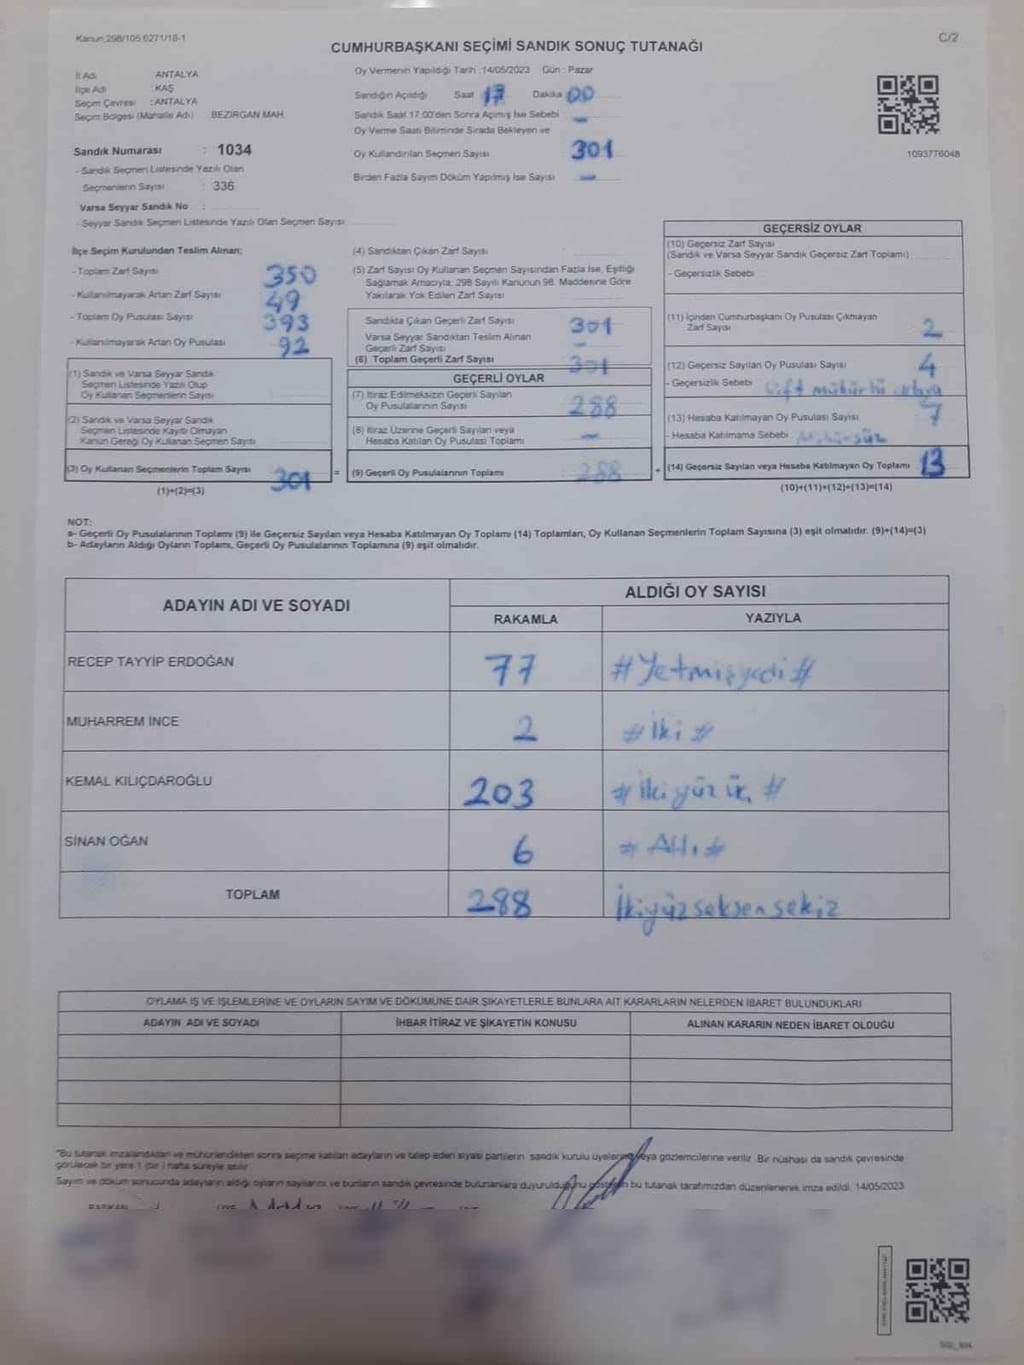 Kanun 298/105 6271/18-1
C/2
CUMHURBAŞKANI SEÇİMİ SANDIK SONUÇ TUTANAĞI
İl Adı ANTALYA
İlçe Adı KAŞ
Seçim Çevresi : ANTALYA
Seçim Bölgesi (Mahalle Adı) BEZİRGAN MAH.
Sandık Numarası : 1034
- Sandık Seçmen Listesinde Yazılı Olan
Seçmenlerin Sayısı : 336
Varsa Seyyar Sandık No :
- Seyyar Sandık Seçmen Listesinde Yazılı Olan Seçmen Sayısı
Oy Vermenin Yapıldığı Tarih : 14/05/2023 Gün : Pazar
Sandığın Açıldığı Saat 17 Dakika 00
Sandık Saat 17:00'den Sonra Açılmış İse Sebebi -
Oy Verme Saati Bitiminde Sırada Bekleyen ve
Oy Kullandırılan Seçmen Sayısı 301
Birden Fazla Sayım Döküm Yapılmış İse Sayısı -
1093776048
İlçe Seçim Kurulundan Teslim Alınan;
- Toplam Zarf Sayısı 350
- Kullanılmayarak Artan Zarf Sayısı 49
- Toplam Oy Pusulası Sayısı 393
- Kullanılmayarak Artan Oy Pusulası 92
(1) Sandık ve Varsa Seyyar Sandık
Seçmen Listesinde Yazılı Olup
Oy Kullanan Seçmenlerin Sayısı
(2) Sandık ve Varsa Seyyar Sandık
Seçmen Listesinde Kayıtlı Olmayan
Kanun Gereği Oy Kullanan Seçmen Sayısı
(3) Oy Kullanan Seçmenlerin Toplam Sayısı 301
(1)+(2)=(3)
=
(4) Sandıktan Çıkan Zarf Sayısı
(5) Zarf Sayısı Oy Kullanan Seçmen Sayısından Fazla İse, Eşitliği
Sağlamak Amacıyla, 298 Sayılı Kanunun 98. Maddesine Göre
Yakılarak Yok Edilen Zarf Sayısı
Sandıkta Çıkan Geçerli Zarf Sayısı 301
Varsa Seyyar Sandıktan Teslim Alınan
Geçerli Zarf Sayısı -
(6) Toplam Geçerli Zarf Sayısı 301
GEÇERLİ OYLAR
(7) İtiraz Edilmeksizin Geçerli Sayılan
Oy Pusulalarının Sayısı 288
(8) İtiraz Üzerine Geçerli Sayılan veya
Hesaba Katılan Oy Pusulası Toplamı -
(9) Geçerli Oy Pusulalarının Toplamı 288
+
GEÇERSİZ OYLAR
(10) Geçersiz Zarf Sayısı
(Sandık ve Varsa Seyyar Sandık Geçersiz Zarf Toplamı)
- Geçersizlik Sebebi
(11) İçinden Cumhurbaşkanı Oy Pusulası Çıkmayan
Zarf Sayısı 2
(12) Geçersiz Sayılan Oy Pusulası Sayısı 4
- Geçersizlik Sebebi Çift mühürlü
(13) Hesaba Katılmayan Oy Pusulası Sayısı 7
- Hesaba Katılmama Sebebi Mühürsüz
(14) Geçersiz Sayılan veya Hesaba Katılmayan Oy Toplamı 13
(10)+(11)+(12)+(13)=(14)
NOT:
a- Geçerli Oy Pusulalarının Toplamı (9) ile Geçersiz Sayılan veya Hesaba Katılmayan Oy Toplamı (14) Toplamları, Oy Kullanan Seçmenlerin Toplam Sayısına (3) eşit olmalıdır. (9)+(14)=(3)
b- Adayların Aldığı Oyların Toplamı, Geçerli Oy Pusulalarının Toplamına (9) eşit olmalıdır.
ADAYIN ADI VE SOYADI
ALDIĞI OY SAYISI
RAKAMLA YAZIYLA
RECEP TAYYİP ERDOĞAN 77 #Yetmişyedi#
MUHARREM İNCE 2 #İki#
KEMAL KILIÇDAROĞLU 203 #İkiyüz üç#
SİNAN OĞAN 6 #Altı#
TOPLAM 288 İkiyüzseksensekiz
OYLAMA İŞ VE İŞLEMLERİNE VE OYLARIN SAYIM VE DÖKÜMÜNE DAİR ŞİKAYETLERLE BUNLARA AİT KARARLARIN NELERDEN İBARET BULUNDUKLARI
ADAYIN ADI VE SOYADI İHBAR İTİRAZ VE ŞİKAYETİN KONUSU ALINAN KARARIN NEDEN İBARET OLDUĞU
"Bu tutanak imzalandıktan ve mühürlendikten sonra seçime katılan adayların ve talep eden siyasi partilerin sandık kurulu üyelerine veya gözlemcilerine verilir. Bir nüshası da sandık çevresinde
görülecek bir yere 1 (bir) hafta süreyle asılır.
Sayım ve döküm sonucunda adayların aldığı oyların sayılarını ve bunların sandık çevresinde bulunanlara duyurulduğunu gösteren bu tutanak tarafımızdan düzenlenerek imza edildi. 14/05/2023
BAŞKAN